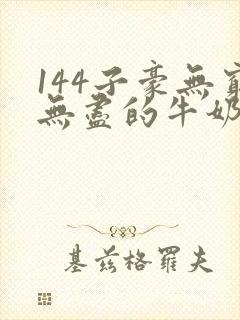 144子豪無窮
無盡的牛奶
基茲格羅夫